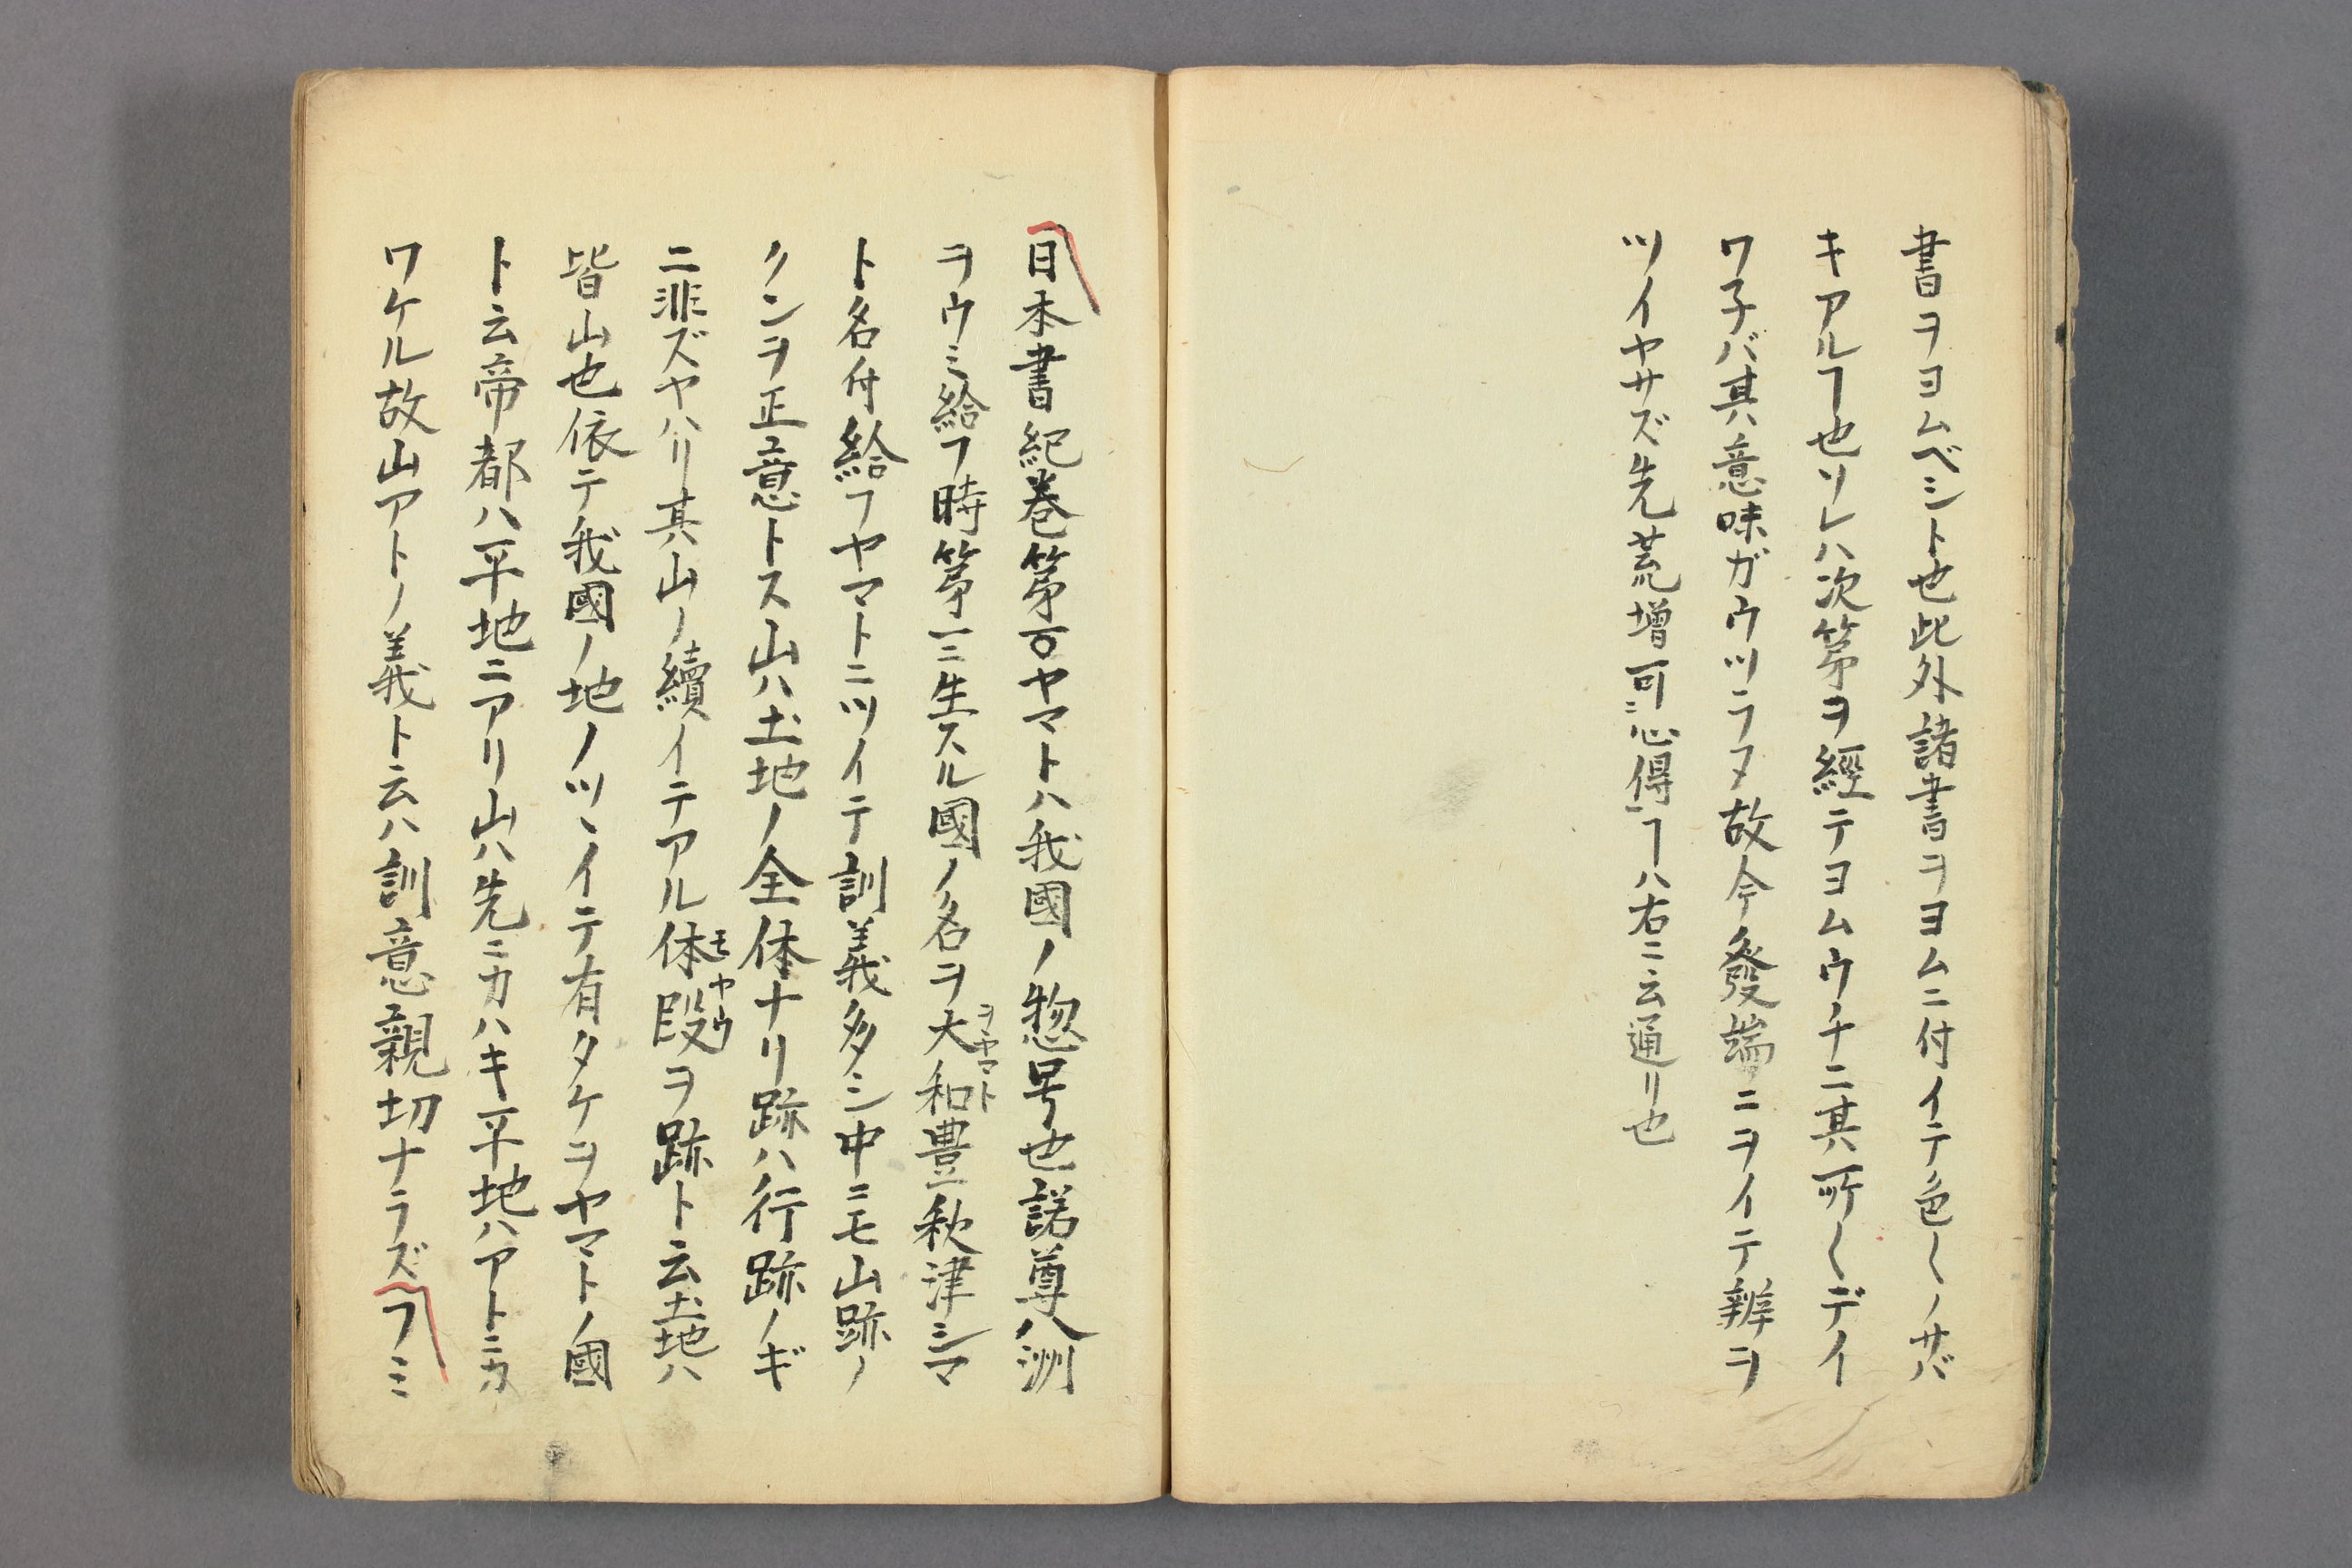 書ヲヨムベシト也此外諸書ヲヨムニ付イテ色〱ノサバ
キアルヿ也ソレハ次第ヲ經テヨムウチニ其所〱デイ
ワ子バ其意味ガウツラヌ故今發端ニヲイテ辨ヲ
ツイヤサズ先荒増可心得ヿハ右ニ云通リ也
日本書紀巻第一ヤマトハ我國ノ惣号也諾尊八洲
ヲウミ給フ時第一ニ生スル國ノ名ヲ大和豊秋津シマ
ヲヤマト
ト名付給フヤマトニツイテ訓義多シ中ニモ山跡ノ
クンヲ正意トス山ハ土地ノ全体ナリ跡ハ行跡ノギ
ニ非ズヤハリ其山ノ續イテアル体段ヲ跡ト云土地ハ
モヤウ
皆山也依テ我國ノ地ノツヽイテ有タケヲヤマトノ國
ト云帝都ハ平地ニアリ山ハ先ニカハキ平地ハアトニカ
ワケル故山アトノ義ト云ハ訓意親切ナラズフミ